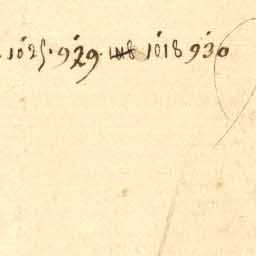 1025 · 929 · 1018 930